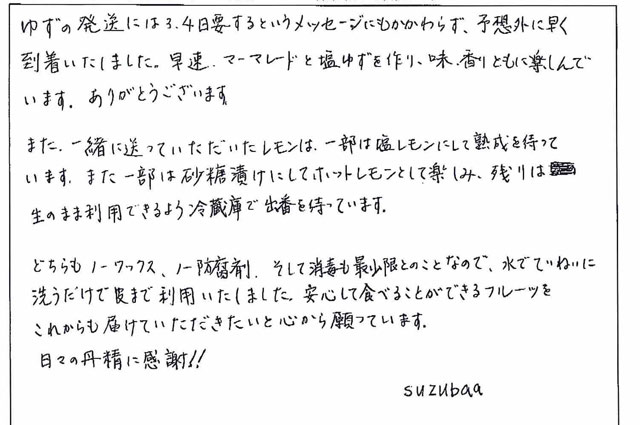 ゆずの発送には3.4日要するというメッセージにもかかわらず、予想外に早く
到着いたしました。早速、マーマレードと塩ゆずを作り、味、香りともに楽しんで
います。ありがとうございます
また、一緒に送っていただいたレモンは、一部は塩レモンにして熟成を待って
います。また一部は砂糖漬けにしてホットレモンとして楽しみ、残りは
生のまま利用できるよう冷蔵庫で出番を待っています。
どちらもノーワックス、ノー防腐剤、そして消毒も最少限とのことなので、水でていねいに
洗うだけで皮まで利用いたしました。安心して食べることができるフルーツを
これからも届けていただきたいと心から願っています。
日々の丹精に感謝!!
suzubaa